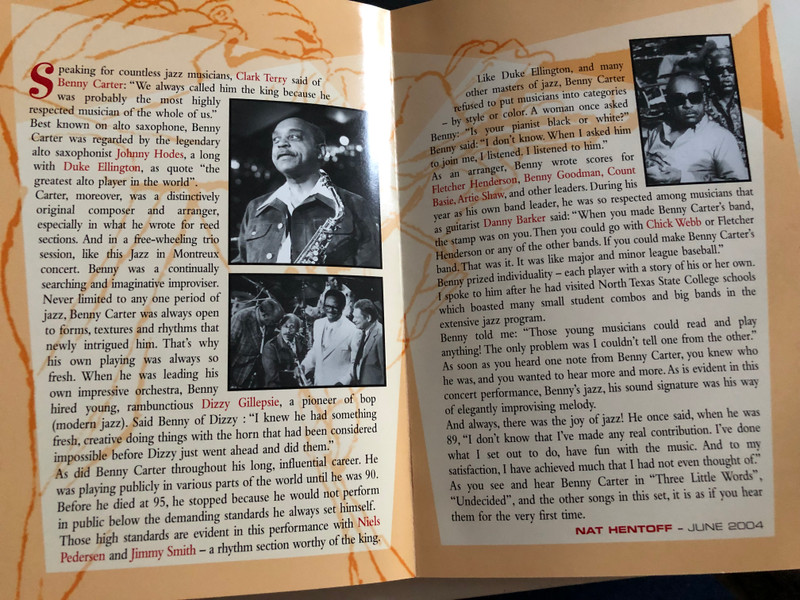 Speaking for countless jazz musicians, Clark Terry said of
Benny Carter: “We always called him the king because he
was probably the most highly
respected musician of the whole of us.”
Best known on alto saxophone, Benny
Carter was regarded by the legendary
alto saxophonist Johnny Hodes, a long
with Duke Ellington, as quote “the
greatest alto player in the world”.
Carter, moreover, was a distinctively
original composer and arranger,
especially in what he wrote for reed
sections. And in a free-wheeling trio
session, like this Jazz in Montreux
concert. Benny was a continually
searching and imaginative improviser.
Never limited to any one period of
jazz, Benny Carter was always open
to forms, textures and rhythms that
newly intrigued him. That’s why
his own playing was always so
fresh. When he was leading his
own impressive orchestra, Benny
hired young, rambunctious Dizzy Gillepsie, a pioneer of bop
(modern jazz). Said Benny of Dizzy : “I knew he had something
fresh, creative doing things with the horn that had been considered
impossible before Dizzy just went ahead and did them.”
As did Benny Carter throughout his long, influential career. He
was playing publicly in various parts of the world until he was 90.
Before he died at 95, he stopped because he would not perform
in public below the demanding standards he always set himself.
Those high standards are evident in this performance with Niels
Pedersen and Jimmy Smith – a rhythm section worthy of the king.
Like Duke Ellington, and many
other masters of jazz, Benny Carter
refused to put musicians into categories
– by style or color. A woman once asked
Benny: “Is your pianist black or white?”
Benny said: “I don’t know. When I asked him
to join me, I listened. I listened to him.”
As an arranger, Benny wrote scores for
Fletcher Henderson, Benny Goodman, Count
Basie, Artie Shaw, and other leaders. During his
year as his own band leader, he was so respected among musicians that
as guitarist Danny Barker said: “When you made Benny Carter’s band,
the stamp was on you. Then you could go with Chick Webb or Fletcher
Henderson or any of the other bands. If you could make Benny Carter’s
band. That was it. It was like major and minor league baseball.”
Benny prized individuality – each player with a story of his or her own.
I spoke to him after he had visited North Texas State College schools
which boasted many small student combos and big bands in the
extensive jazz program.
Benny told me: “Those young musicians could read and play
anything! The only problem was I couldn’t tell one from the other.”
As soon as you heard one note from Benny Carter, you knew who
he was, and you wanted to hear more and more. As is evident in this
concert performance, Benny’s jazz, his sound signature was his way
of elegantly improvising melody.
And always, there was the joy of jazz! He once said, when he was
89, “I don’t know that I’ve made any real contribution. I’ve done
what I set out to do, have fun with the music. And to my
satisfaction, I have achieved much that I had not even thought of.”
As you see and hear Benny Carter in “Three Little Words”,
“Undecided”, and the other songs in this set, it is as if you hear
them for the very first time.
NAT HENTOFF – JUNE 2004